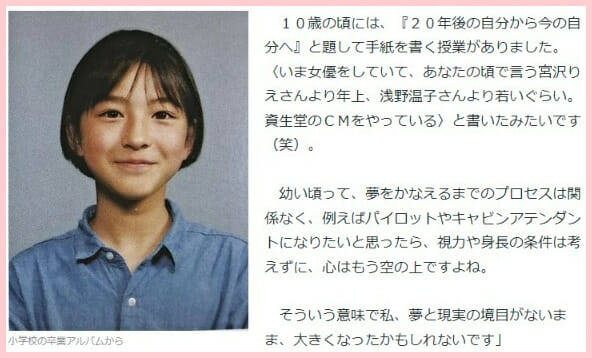 １０歳の頃には、『２０年後の自分から今の自
分へ』と題して手紙を書く授業がありました。
〈いま女優をしていて、あなたの頃で言う宮沢り
えさんより年上、浅野温子さんより若いぐらい。
資生堂のＣＭをやっている〉と書いたみたいです
（笑）。
幼い頃って、夢をかなえるまでのプロセスは関
係なく、例えばパイロットやキャビンアテンダン
トになりたいと思ったら、視力や身長の条件は考
えずに、心はもう空の上ですよね。
そういう意味で私、夢と現実の境目がないま
ま、大きくなったかもしれないです」
小学校の卒業アルバムから